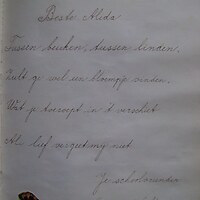 Beste Alida
Tussen beuken, tussen linden,
Zult ge wel een bloempje vinden,
Wat je toeroept in 't verschiet
Al lief vergeet mij niet.
Je schoolvriendin